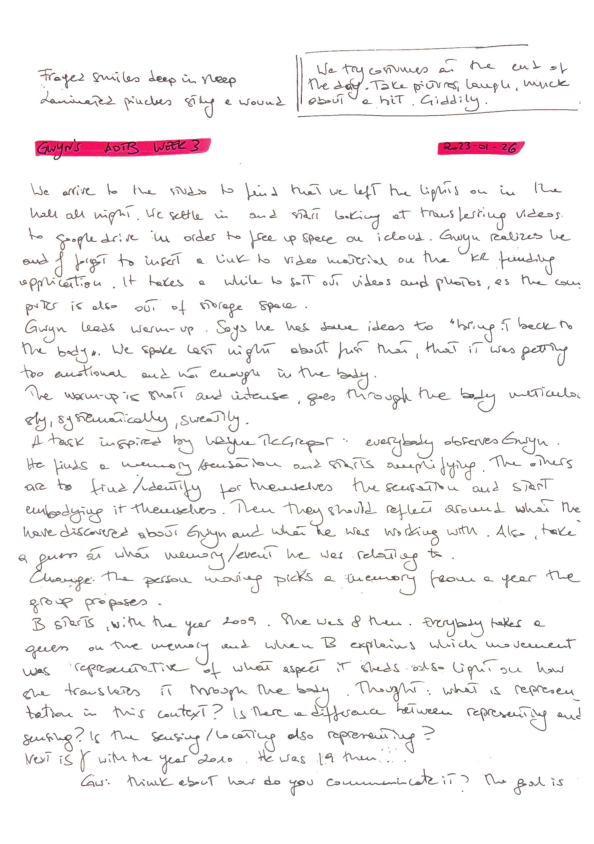 Frayed smiles deep in sleep
Laminated pinches stiky a wound
We try costumes at the end of
the day. Take pictures, laugh, muck
about a bit. Giddily.
GWYN'S ADTB WEEK 3
2023-01-26
We arrive to the studio to find that we left the lights on in the
hall all night. We settle in and start looking at transferring videos
to google drive in order to free up space on icloud. Gwyn realizes he
and J forgot to insert a link to video material on the KR funding
application. It takes a while to sort out videos and photos, as the com
puter is also out of storage space.
Gwyn leads warm-up. Says he has some ideas to "bring it back to
the body". We spoke last night about just that, that it was getting
too emotional and not enough in the body.
The warm-up is short and intense, goes through the body meticulou
sly, systematically, sweatily.
A task inspired by Wayne McGregor: everybody observes Gwyn.
He finds a memory/sensation and starts amplifying. The others
are to find/identify for themselves the sensation and start
embodying it themselves. Then they should reflect around what the
have discovered about Gwyn and what he was working with. Also, take
a guess at what memory/event he was relating to.
Change: the person moving picks a memory from a year the
group proposes.
B starts, with the year 2009. She was 8 then. Everybody takes a
guess on the memory and when B explains which movement
was representative of what aspect it sheds also light on how
she translates it through the body. Thought: what is represen
tation in this context? Is there a difference between representing and
sensing? Is the sensing/locating also representing?
Next is J with the year 2010. He was 19 then...
Gw: think about how do you communicate it? The goal is